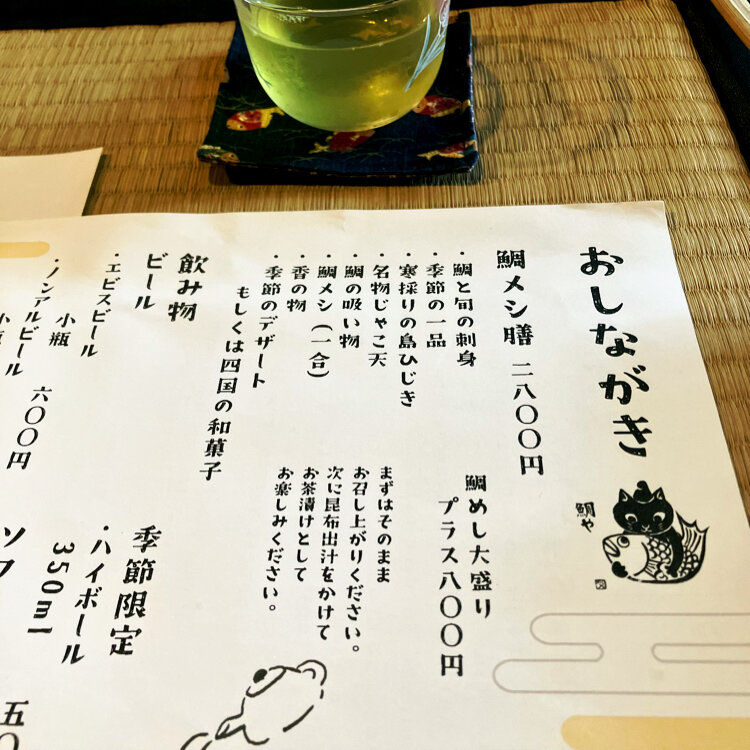 おしながき
鯛や
鯛メシ膳 二八〇〇円
・鯛と旬の刺身
・季節の一品
・寒採りの島ひじき
・名物じゃこ天
・鯛の吸い物
・鯛メシ（一合）
・香の物
・季節のデザート
もしくは四国の和菓子
鯛めし大盛り
プラス八〇〇円
まずはそのまま
お召し上がりください。
次に昆布出汁をかけて
お茶漬けとして
お楽しみください。
飲み物
ビール
・エビスビール
小瓶
六〇〇円
・ノンアルビール
小瓶
季節限定
・ハイボール
350ml